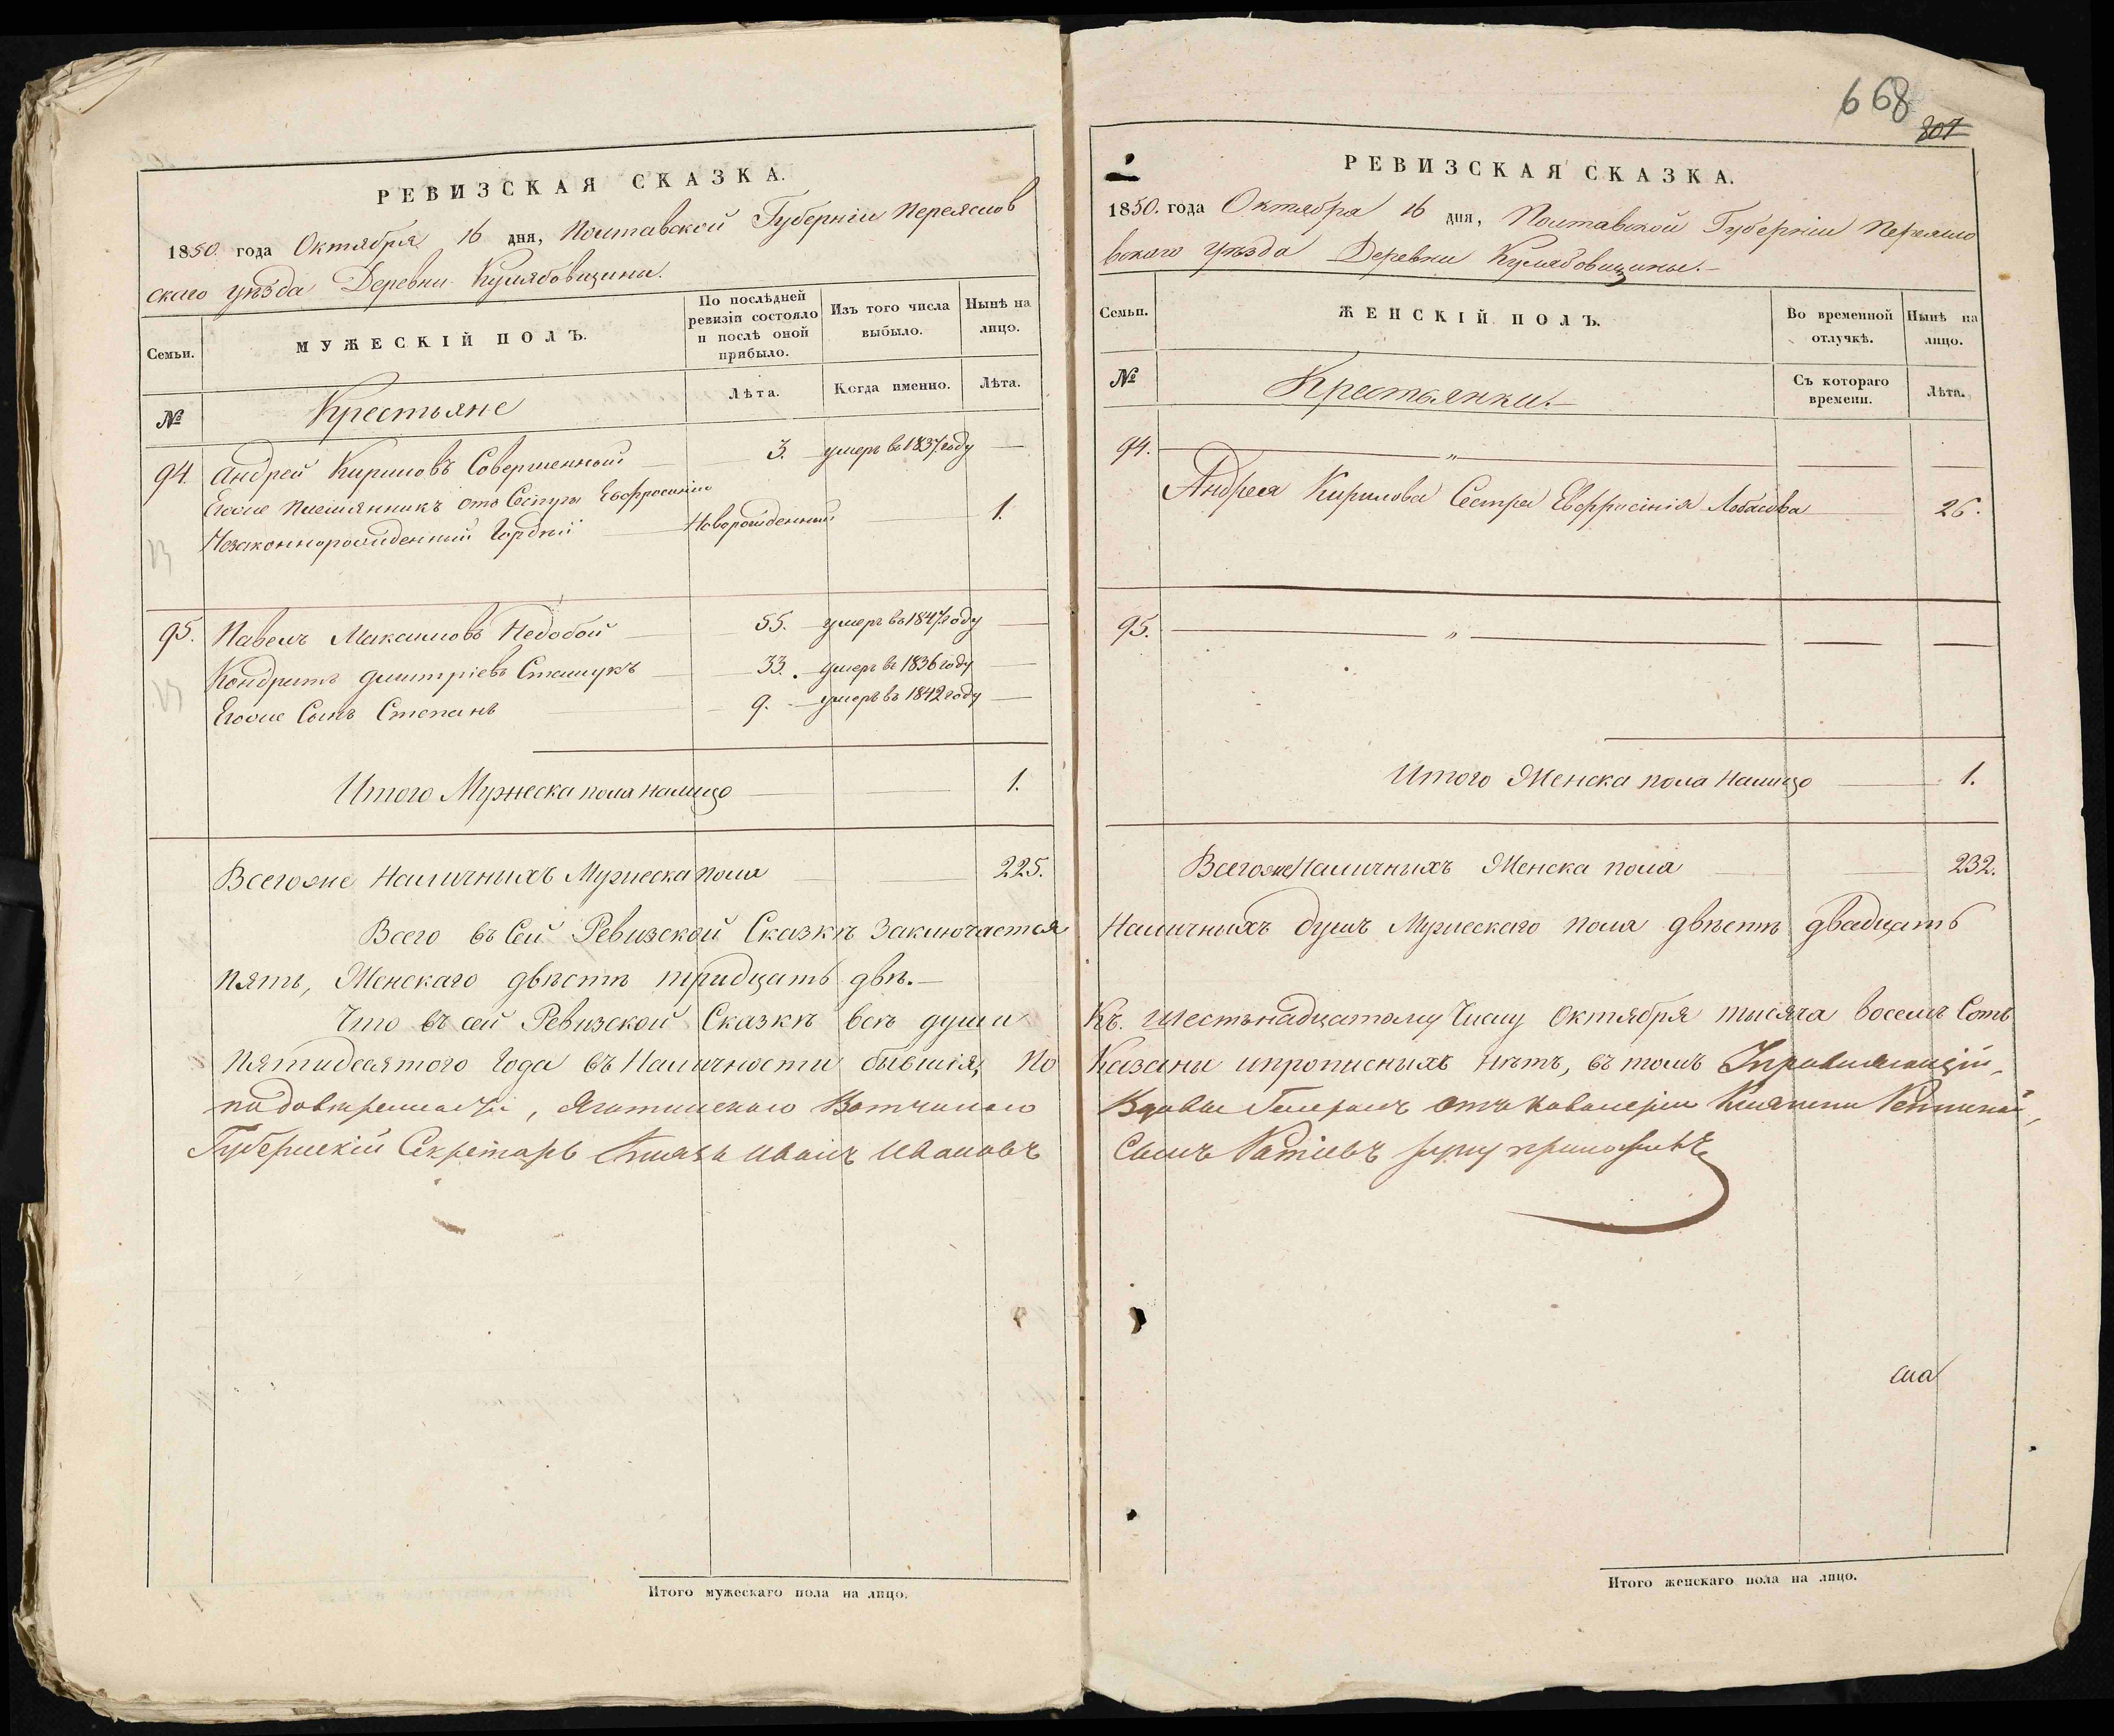 668
801
РЕВИЗСКАЯ СКАЗКА.
1850. года Октября 16 дня, Полтавской Губерніи Переяслов
скаго уѣзда Деревни Кулябовщини.
Семьи.
МУЖЕСКІЙ ПОЛЪ.
По послѣдней
ревизіи состояло
и послѣ оной
прибыло.
Изъ того числа
выбыло.
Нынѣ на
лицо.
№
Крестьяне
Лѣта.
Когда именно.
Лѣта.
94. Андрей Кириловъ Совершенной 3. умеръ въ 1837 году
Егоже племянникъ отъ Сестры Евфросиніи
Незаконнорожденный Гордѣй Новорожденный 1.
95. Павелъ Максимовъ Недобой 55. умеръ въ 1847 году
Кондратъ Дмитріевъ Сташукъ 33. умеръ въ 1836 году
Егоже Сынъ Степанъ 9. умеръ въ 1842 году
Итого Мужеска пола налицо 1.
Всегоже Наличныхъ Мужеска пола 225.
Всего въ Сей Ревизской Сказкѣ Заключается
пять, Женскаго двѣстѣ тридцать двѣ.
Что въ сей Ревизской Сказкѣ всѣ души
Пятидесятого Года въ Наличности бывшія, По
Яготинскаго Вотчинаго
Губернскій Секретарь Князь Иванъ Ивановъ
Итого мужескаго пола на лицо.
РЕВИЗСКАЯ СКАЗКА.
1850. года Октября 16 дня, Полтавской Губерніи Переясло
вскаго Уѣзда Деревни Кулябовщины.
Семьи.
ЖЕНСКІЙ ПОЛЪ.
Во временной
отлучкѣ.
Нынѣ на
лицо.
№
Крестьянки.
Съ котораго
времени.
Лѣта.
94. "
Андрея Кирилова Сестра Евфросинія 26.
95. "
Итого Женска пола Налицо 1.
Всегоже Наличныхъ Женска пола 232.
Наличныхъ душъ Мужескаго пола двѣстѣ двадцать
Къ. шестьнадцатому Числу Октября тысяча восемъ Сотъ
Казаны ипрописныхъ нѣтъ, въ томъ Управляющій
Вдовы Генералъ отъ Кавалеріи Княгини Репниной,
Сынъ руку приложилъ
сиа
Итого женскаго пола на лицо.